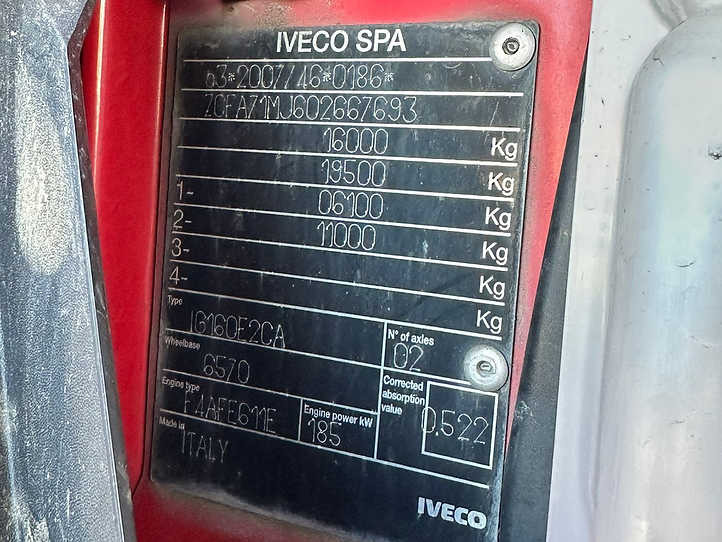 IVECO SPA
e3*2007/46*0186*
ZCFA71MJ602667693
16000 Kg
19500 Kg
1- 06100 Kg
2- 11000 Kg
3- Kg
4- Kg
Type
IG160E2CA
N° of axles
02
Wheelbase
6570
Corrected absorption value
0.522
Engine type
F4AFE611E
Engine power kW
185
Made in
ITALY
IVECO